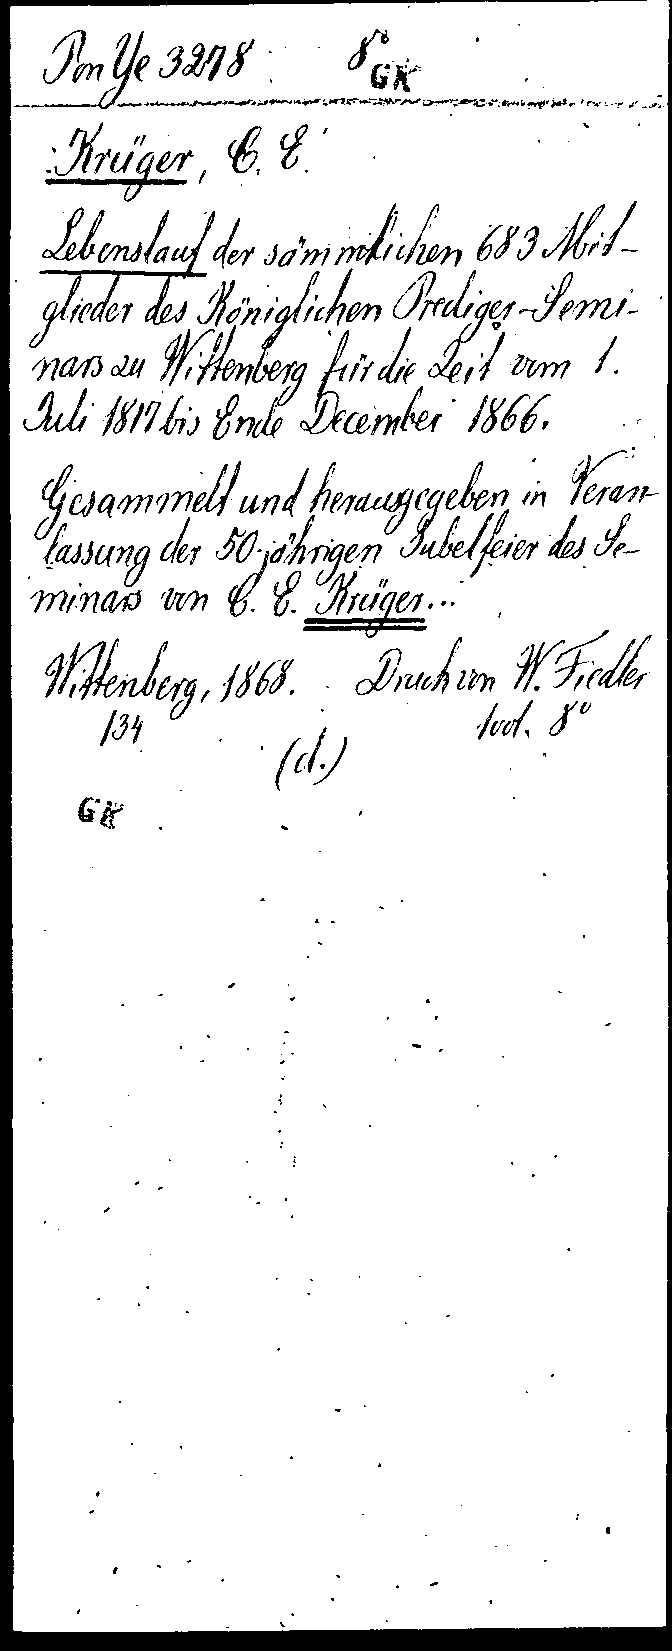 Pon Ye 3278 8°
GK
Krüger, C. E.
Lebenslauf der sämmtlichen 683 Mit-
glieder des Königlichen Prediger-Semi-
nars zu Wittenberg für die Zeit vom 1.
Juli 1817 bis Ende December 1866.
Gesammelt und herausgegeben in Veran-
lassung der 50-jährigen Jubelfeier des Se-
minars von C. E. Krüger...
Wittenberg, 1868. Druck von W. Fiedler
134 8°
(d.)
GK